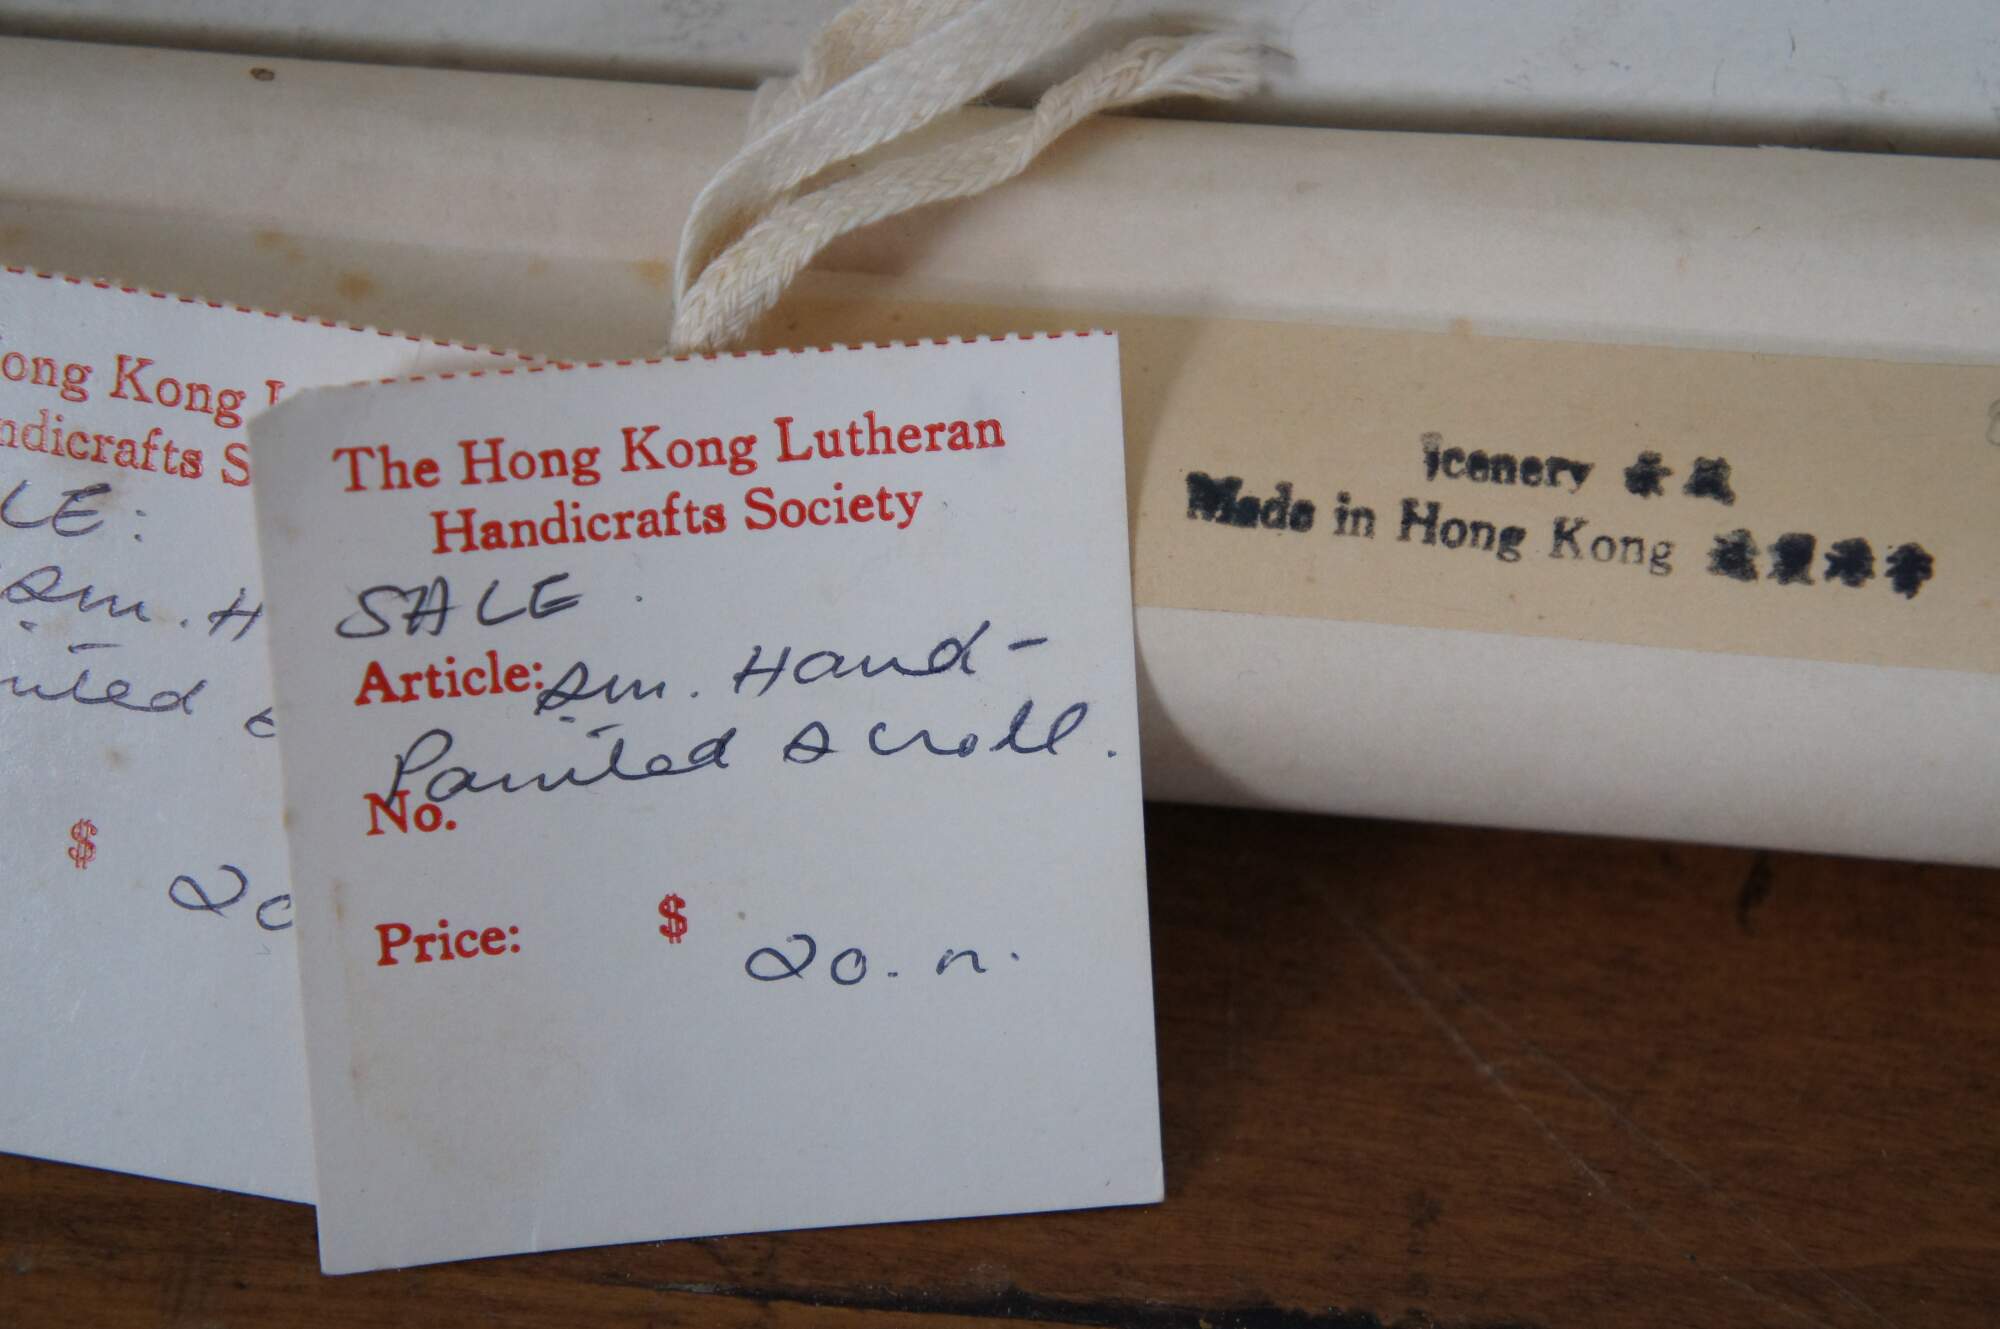 The Hong Kong Lutheran
Handicrafts Society
SALE.
Article: Sm. Hand-
Painted Scroll.
No.
Price: $ 20.n.
ong Kong L
ndicrafts S
LE:
Sm. H
nted S
$ 20
Scenery
Made in Hong Kong